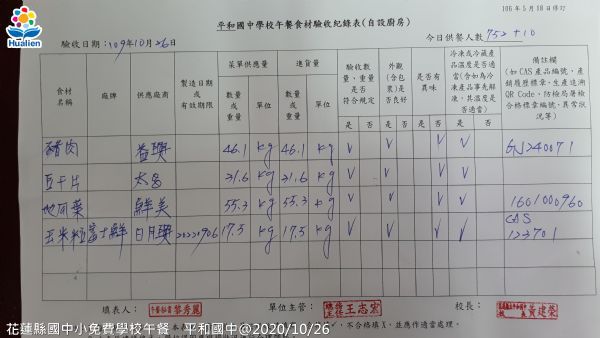 Hualien
106年5月18日修訂
平和國中學校午餐食材驗收紀錄表(自設廚房)
驗收日期：109年10月26日 今日供餐人數 752+10
食材名稱 廠牌 供應廠商 製造日期或有效期限 菜單供應量 進貨量 驗收數量、重量是否符合規定 外觀(含包裝)是否良好 是否有異味 冷凍或冷藏產品溫度是否適當(含如為冷凍產品事先解凍，其溫度是否適當) 備註欄(如CAS產品編號，產銷履歷標章，生產追溯QR Code，防檢局屠檢合格標章編號、異常狀況等)
數量或重量 單位 數量或重量 單位 是 否 是 否 是 否 是 否
豬肉 益興 46.1 kg 46.1 kg V V V V
豆干片 31.6 kg 31.6 kg V V V
地瓜葉 鮮美 55.3 kg 55.3 kg V V V 1601000960
玉米粒 富士鮮 17.5 kg 17.5 kg V V V V CAS 123701
填表人： 黎秀麗 單位主管： 王志宏 校長： 黃建榮
不合格填X，並應作適當處理。
花蓮縣國中小免費學校午餐 平和國中@2020/10/26